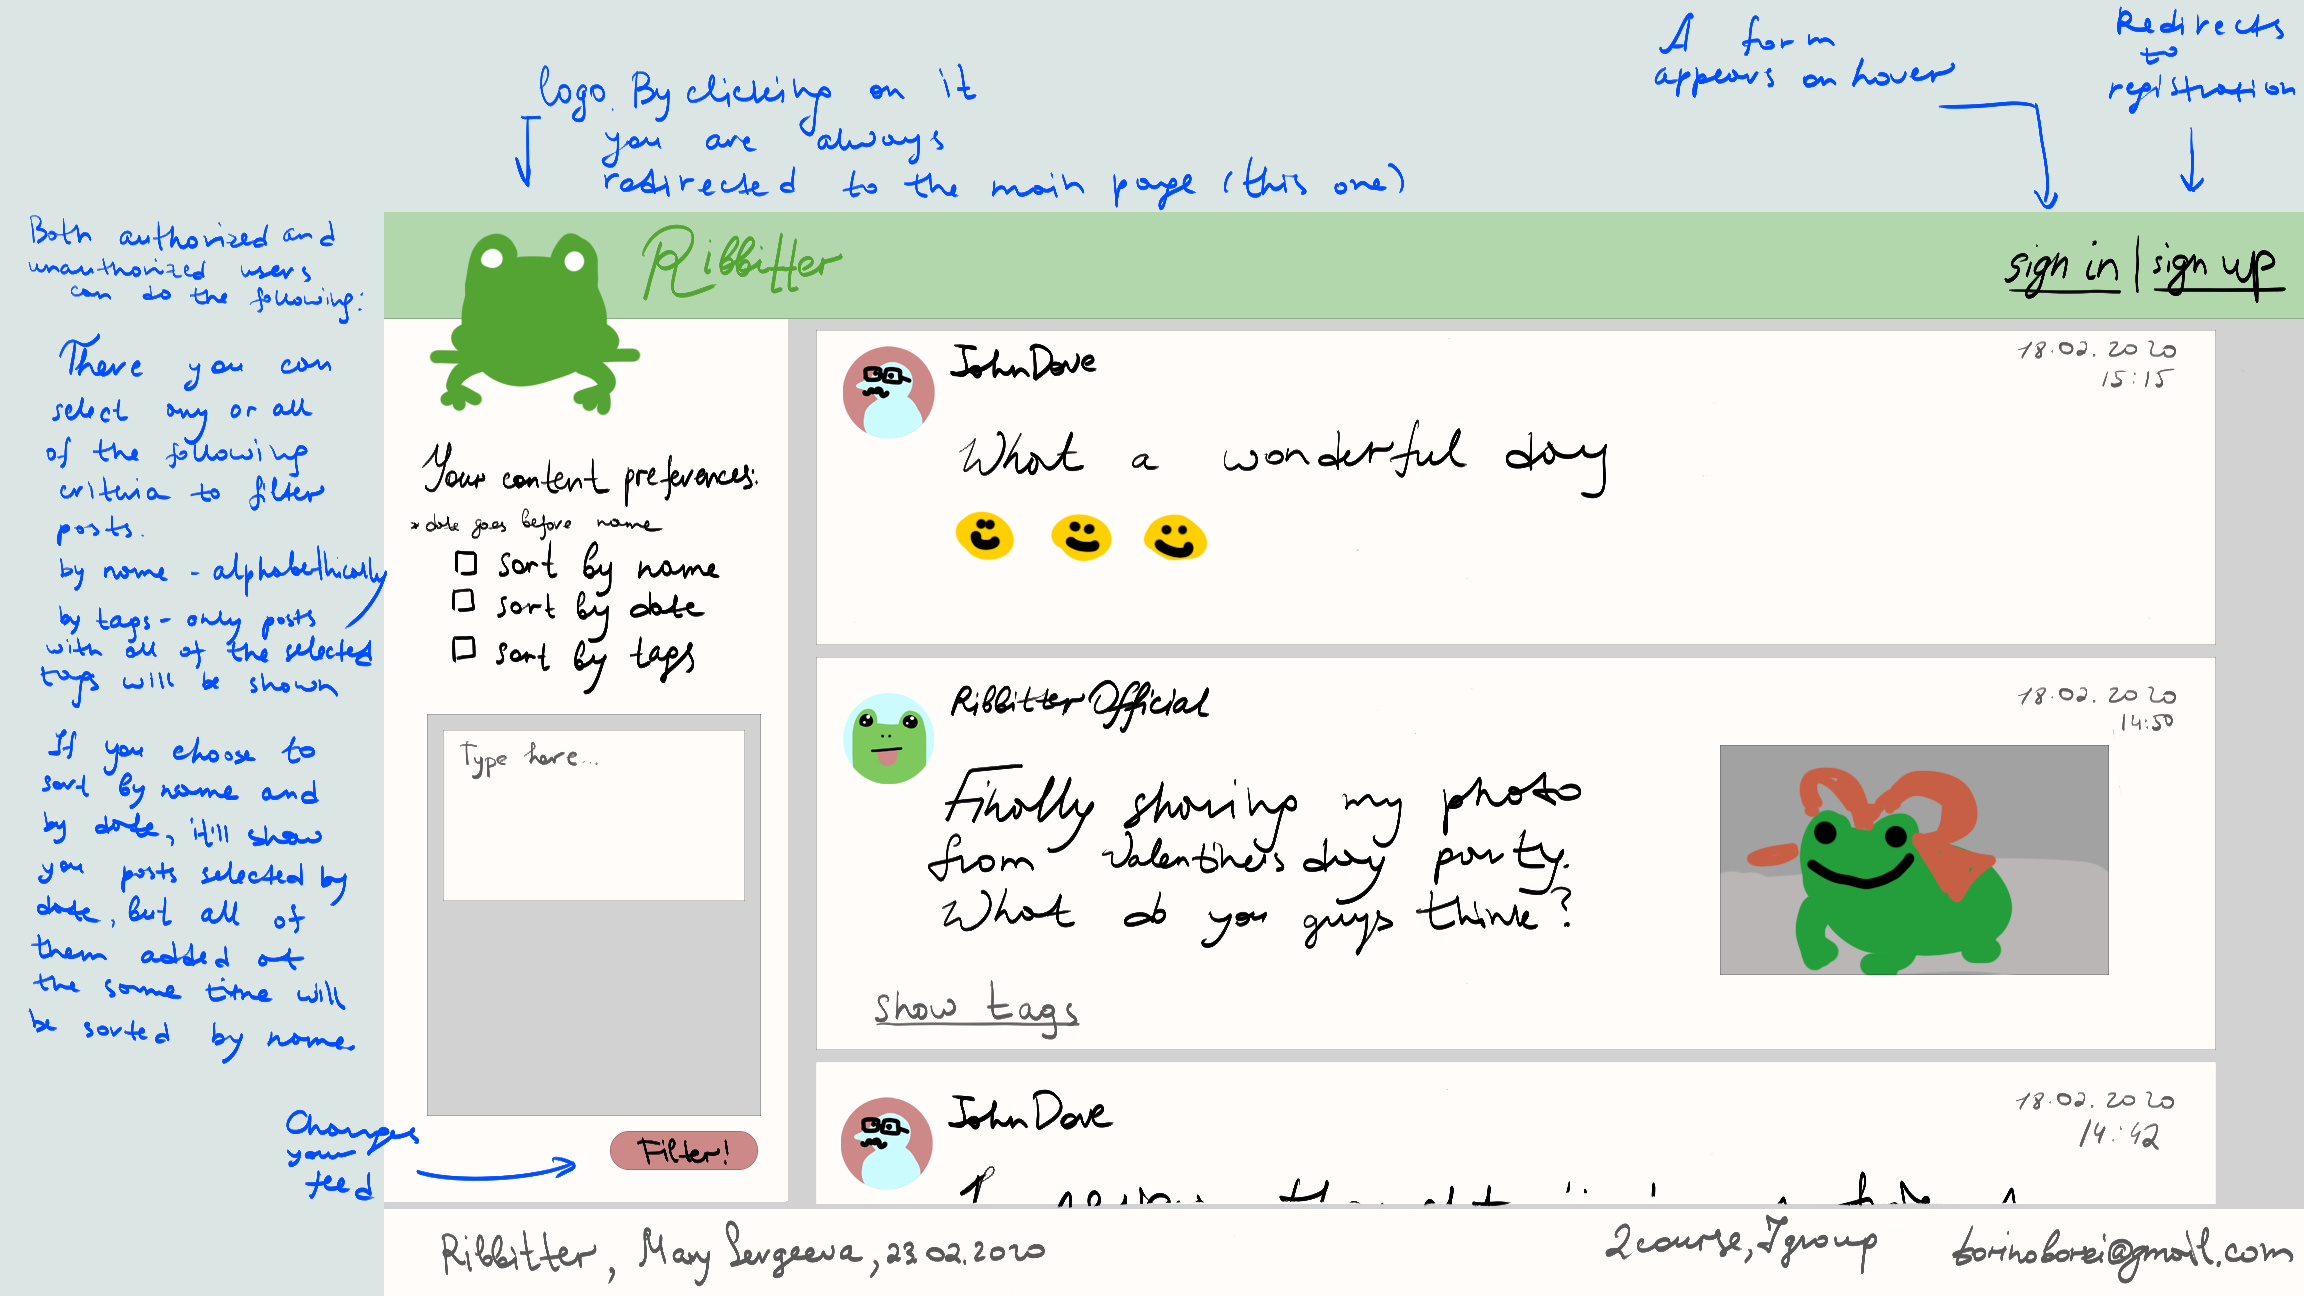 A form
appears on hover
Redirects
to
registration
logo. By clicking on it
you are always
redirected to the main page (this one)
Both authorized and
unauthorized users
can do the following:
There you can
select any or all
of the following
criteria to filter
posts.
by name - alphabethically
by tags - only posts
with all of the selected
tags will be shown
If you choose to
sort by name and
by date, it'll show
you posts selected by
date, but all of
them added at
the same time will
be sorted by name
Changes
your
feed
Ribbitter
sign in | sign up
Your content preferences:
* date goes before name
sort by name
sort by date
sort by tags
Type here...
Filter!
JohnDove
18.02.2020
15:15
What a wonderful day
RibbitterOfficial
18.02.2020
14:50
Finally sharing my photo
from Valentine's day party.
What do you guys think?
show tags
JohnDove
18.02.2020
14:42
Ribbitter, Mary Sergeeva, 23.02.2020
2course, 7group